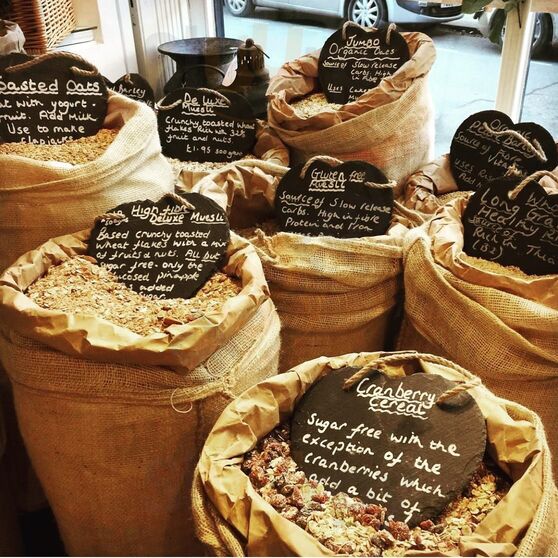 oasted Oats
at with yogurt
fruit. Add milk
Use to make
flapjacks
Barley
De Luxe
Muesli
Crunchy toasted wheat
flakes Rich with 32%
fruit and nuts.
£1.95 500g
Jumbo
Organic Oats
Source of Slow release
Carbs. High in Fibre
Gluten free
Muesli
Source of Slow release
Carbs. High in fibre
Protein and Iron
High fibre
Deluxe Muesli
Based crunchy toasted
wheat flakes with a mix
of fruits & nuts. All but
sugar free - only the
pineapple
added
sugar
Organic
Source of
Uses
Long Gra
Rich in Thia
(B1)
Cranberry
Cereal
Sugar free with the
exception of the
cranberries which
add a bit of